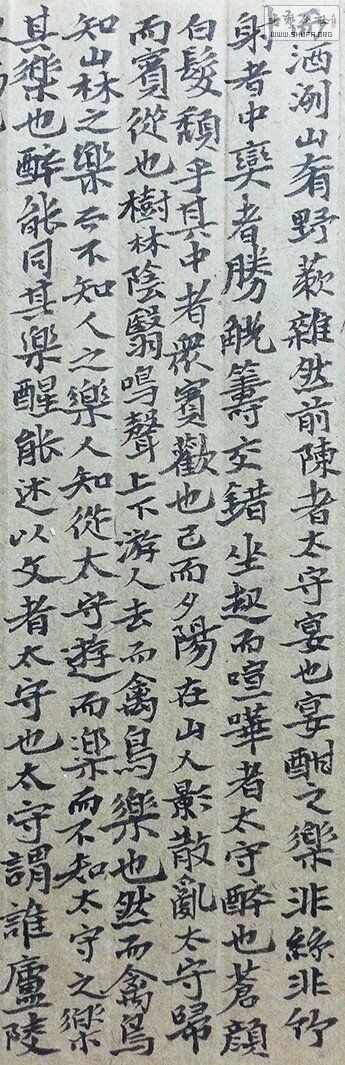 酒洌山肴野蔌雜然前陳者太守宴也宴酣之樂非絲非竹
射者中奕者勝觥籌交錯坐起而喧嘩者太守醉也蒼顏
白髮頹乎其中者衆賓歡也已而夕陽在山人影散亂太守歸
而賓從也樹林陰翳鳴聲上下游人去而禽鳥樂也然而禽鳥
知山林之樂而不知人之樂人知從太守遊而樂而不知太守之樂
其樂也醉能同其樂醒能述以文者太守也太守謂誰廬陵
WWW.SHUFA.ORG